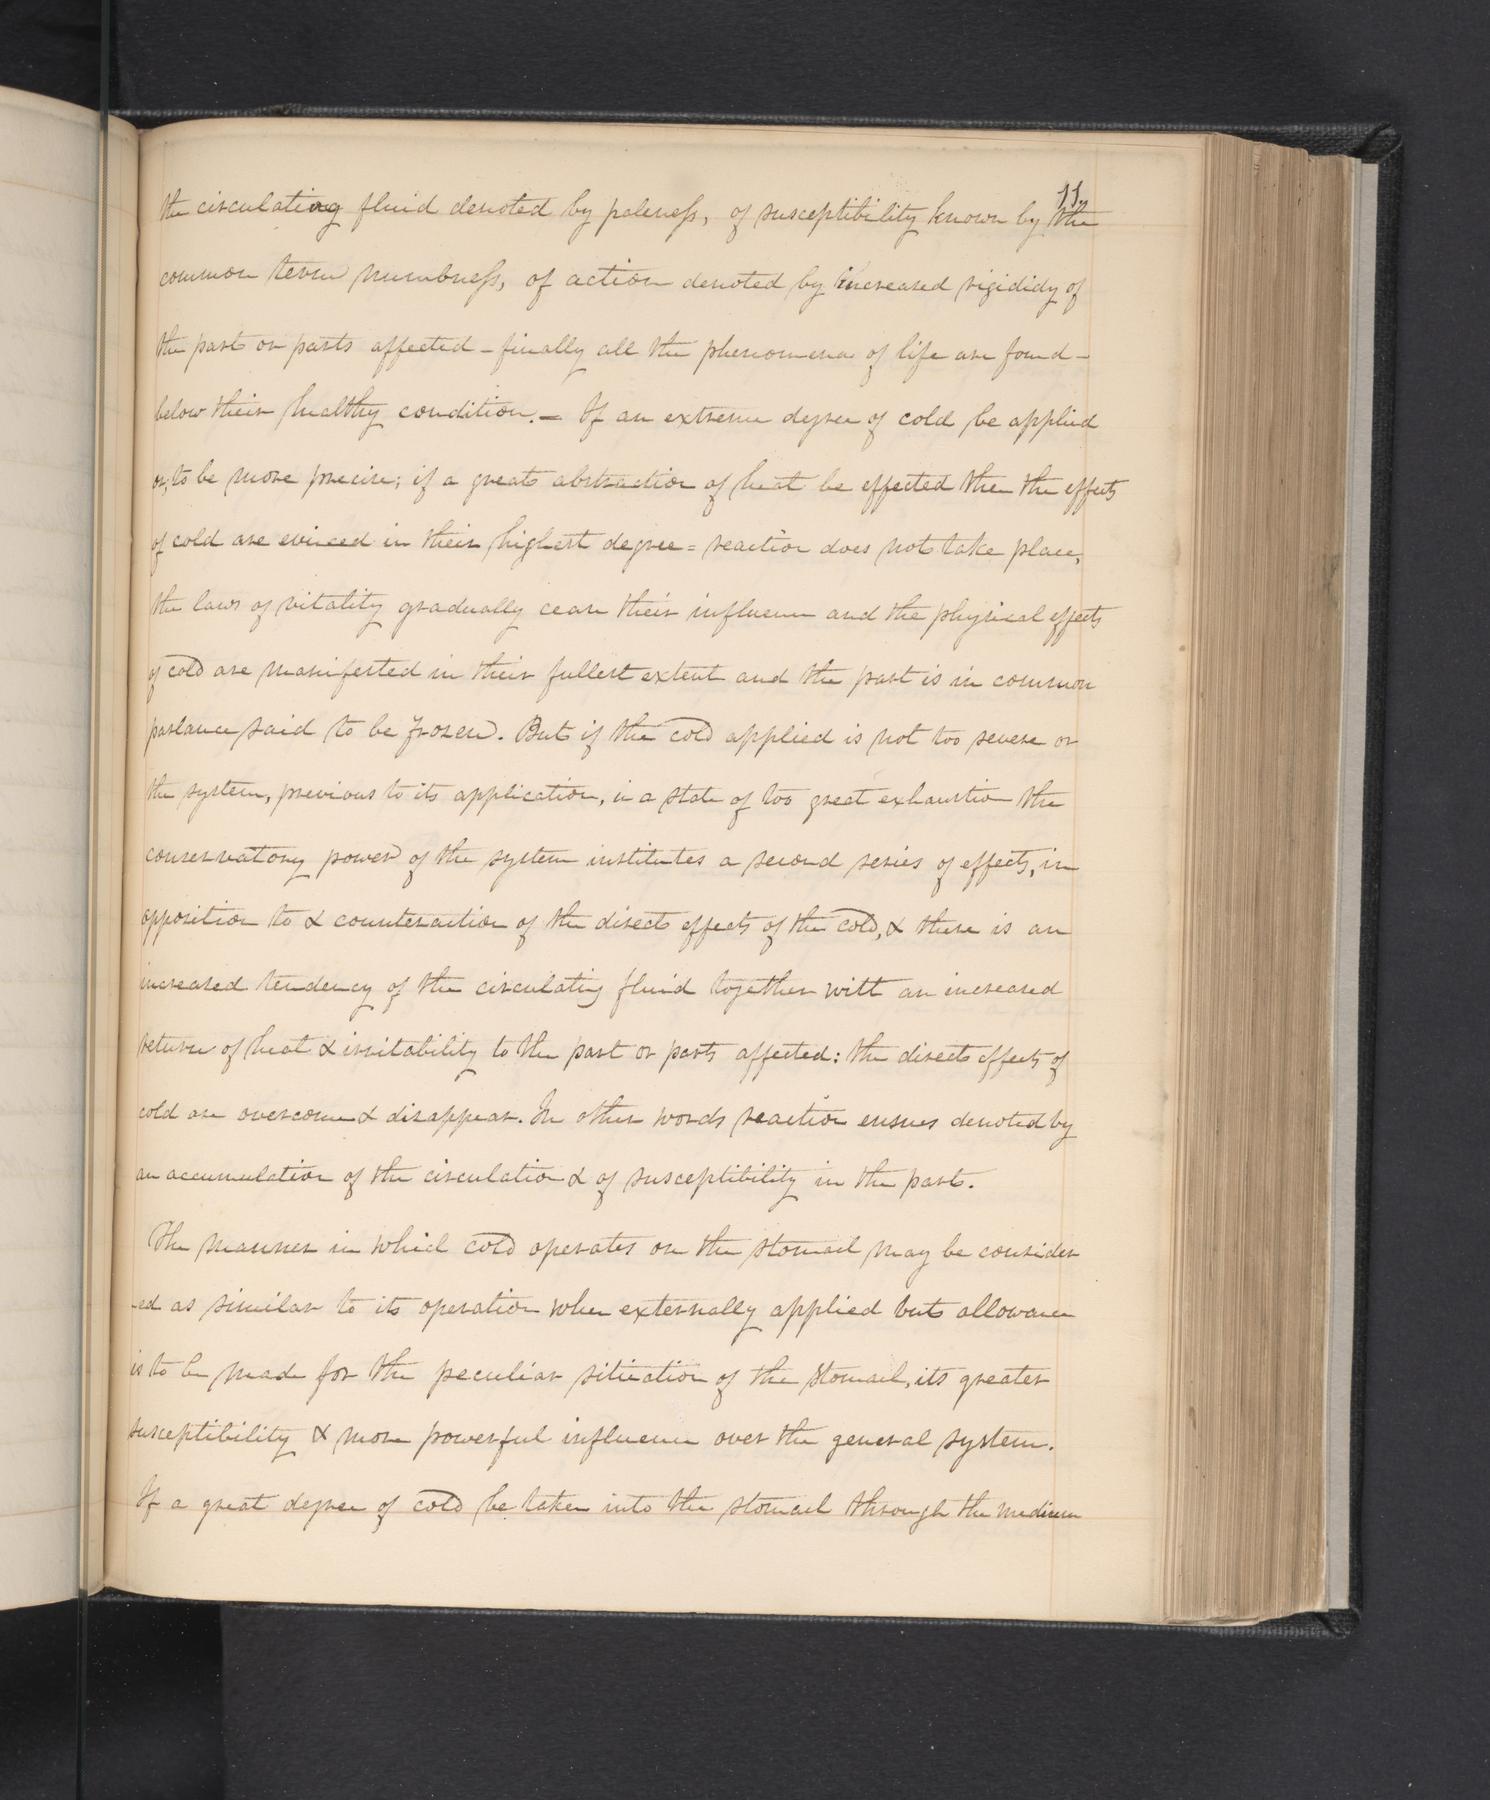 11.
the circulating fluid denoted by paleness, of susceptibility known by the
common term numbness, of action denoted by increased rigididy of
the part or parts affected - finally all the phenomena of life are found -
below their healthy condition. - If an extreme degree of cold be applied
or, to be more precise; if a great abstraction of heat be effected then the effects
of cold are evinced in their highest degree = reaction does not take place,
the laws of vitality gradually cease their influence and the physical effects
of cold are manifested in their fullest extent and the part is in common
parlance said to be frozen. But if the cold applied is not too severe or
the system, previous to its application, in a state of too great exhaustion the
conservatory power of the system institutes a second series of effects, in
opposition to & counteraction of the direct effects of the cold, & there is an
increased tendency of the circulating fluid together with an increased
return of heat & irritability to the part or parts affected: the direct effects of
cold are overcome & disappear. In other words reaction ensues denoted by
an accumulation of the circulation & of susceptibility in the part.
The manner in which cold operates on the stomach may be consider
-ed as similar to its operation when externally applied but allowance
is to be made for the peculiar situation of the stomach, its greater
susceptibility & more powerful influence over the general system.
If a great degree of cold be taken into the stomach through the medium